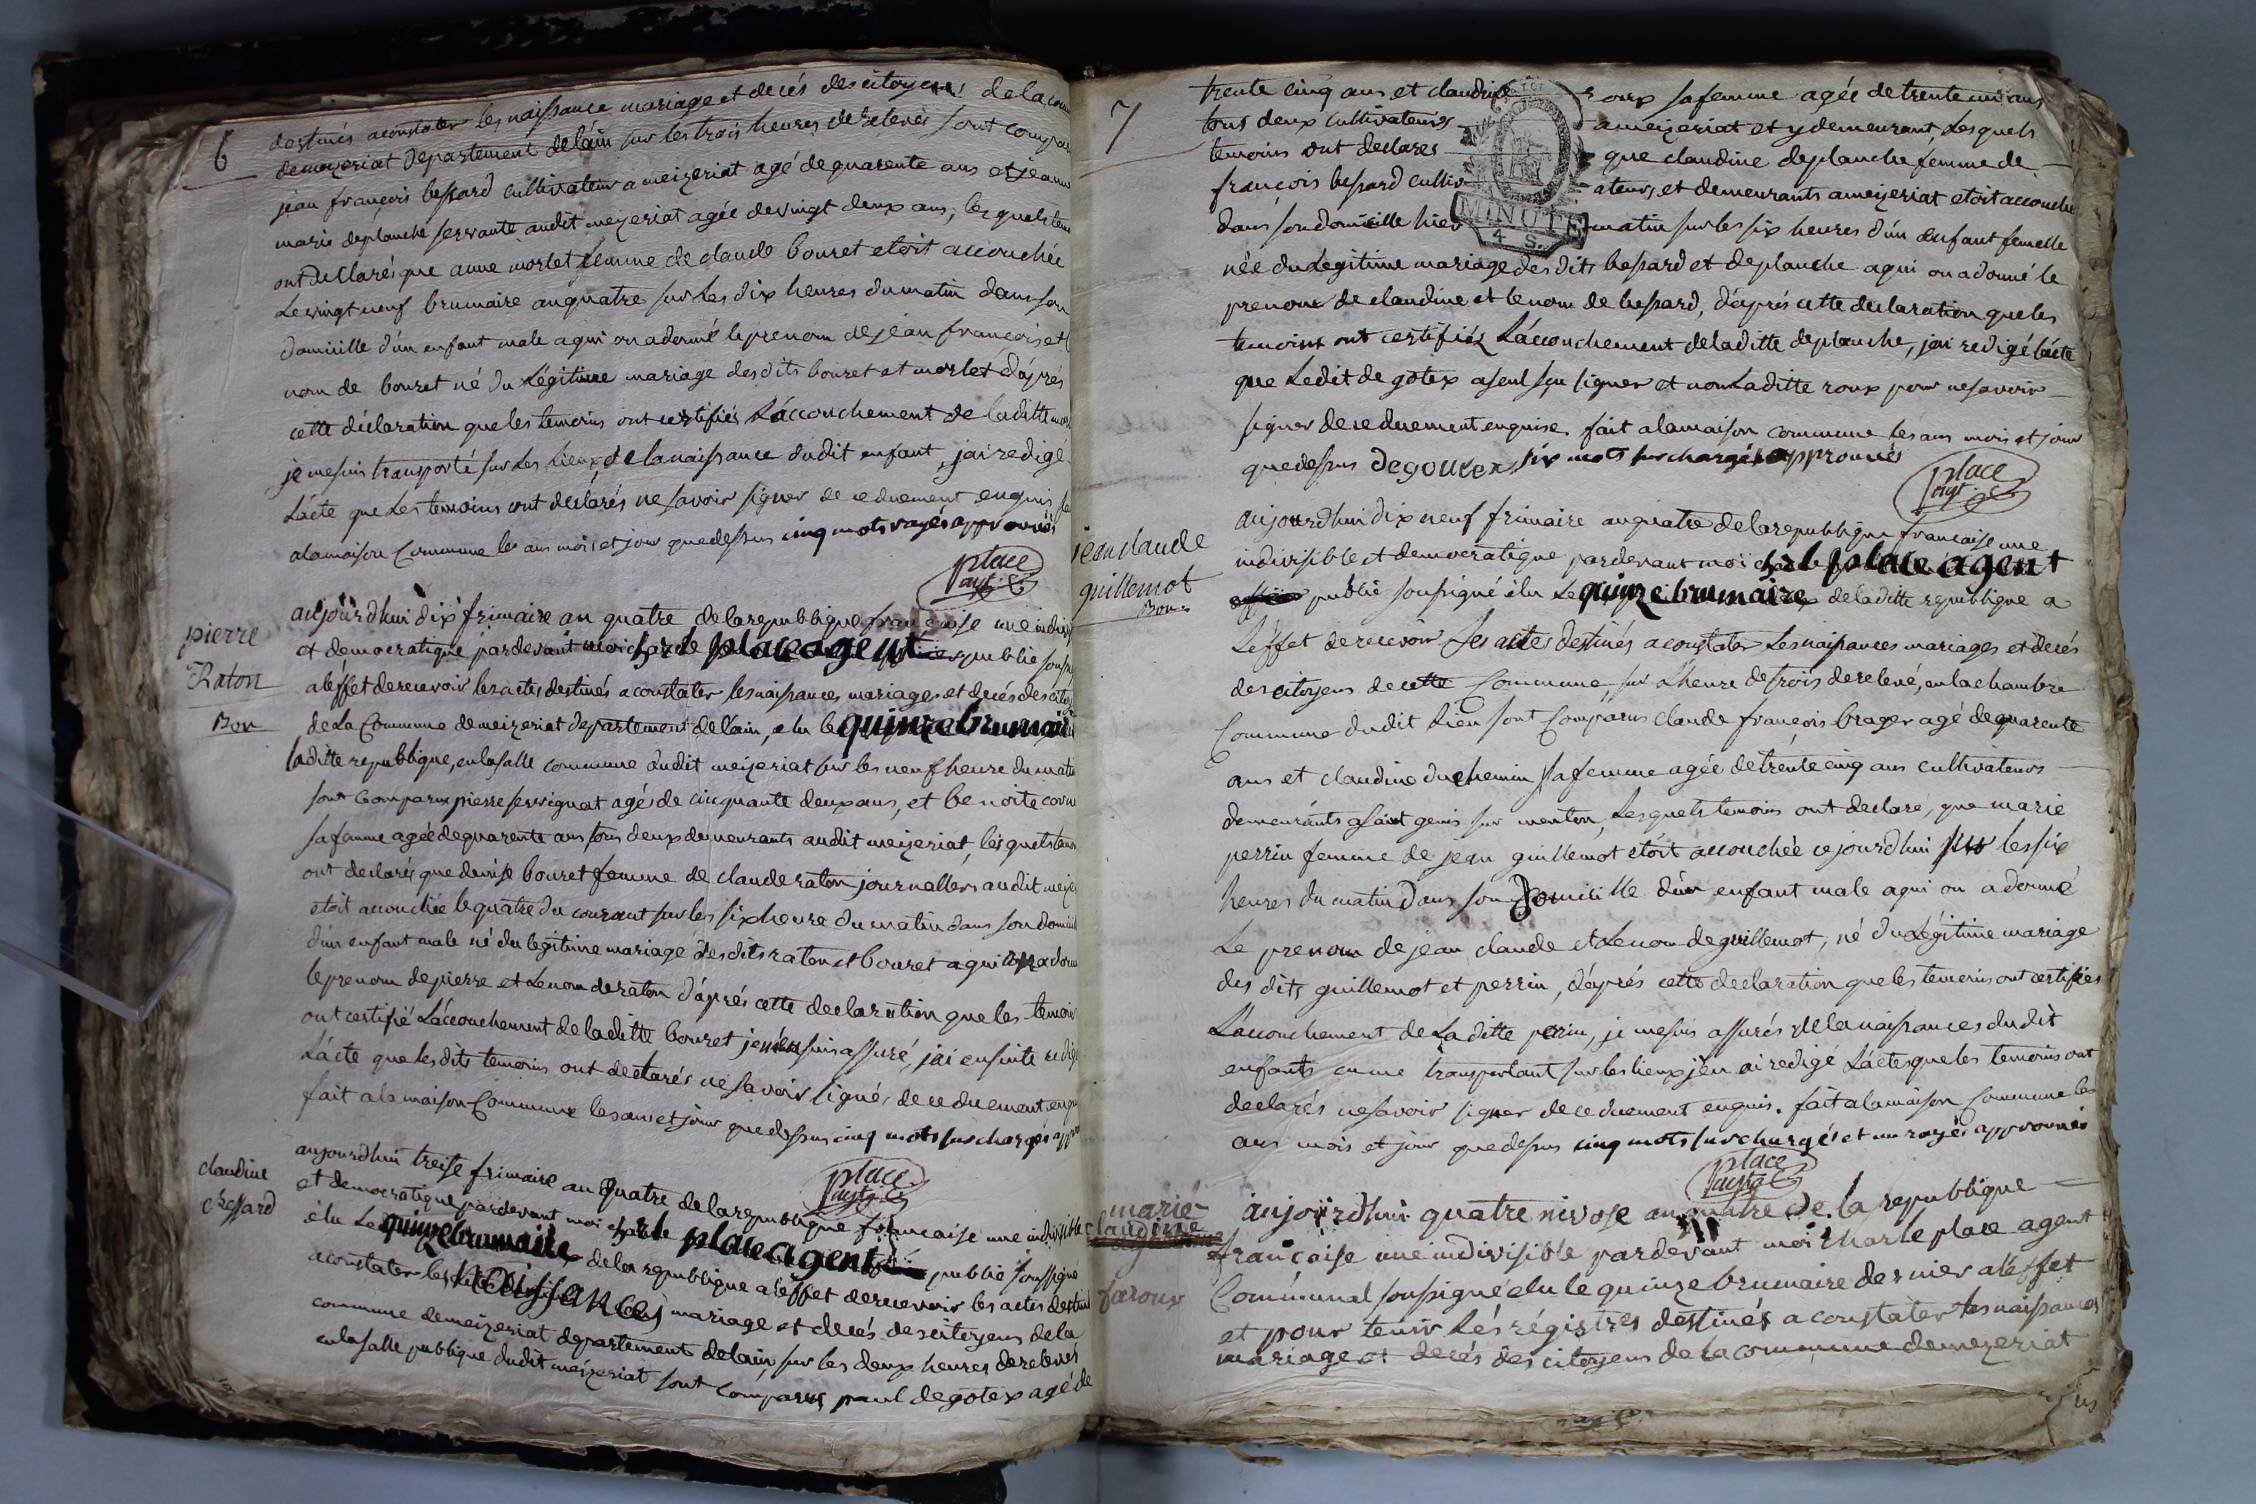 6
destinés aconstater les naissance mariage et decés des citoyens de la
demezeriat departement delain sur les trois heures derelevés sont
jean françois bessard cultivateur a meizeriat agé de quarente ans et
marie deplanche servante audit mezeriat agée devingt deux ans, les quels
ont déclarés que anne morlet femme de claude bouret etoit accouchée
Le vingt neuf brumaire an quatre sur Les dix heures du matin dans son
domicille d'un enfant male aqui on adonné le prenom de jean françois et
nom de bouret né du Légitime mariage desdits bouret et morlet d'aprés
cette déclaration que les temoins ont certifiés L'accouchement de laditte
je me suis transporté sur Les Lieux de la naissance dudit enfant, j'ai redigé
L'acte que Les temoins ont declarés ne savoir signer de ce duement enquis
alamaison Commune les ans mois et jour quedessus cinq mots rayés approuvés
place
agt
pierre
Raton
Bon
aujourdhui dix frimaire an quatre de la republique française une
et democratique pardevant moi charle place agent publie
a l'effet de recevoir les actes destinés a constater les naissances mariages et decés des
de La Commune demeizeriat departement de L'ain, elu le quinze brumaire
laditte republique, en la salle commune dudit meizeriat sur les neuf heure du
sont Comparux pierre servignat agés de cinquante deux ans, et benoite
sa famme agée de quarente ans tous deux demeurants audit meizeriat, les quels
ont declarés que denise bouret femme de claude raton journallers audit
etoit accouchée le quatre du courant sur les six heure du matin dans son
d'un enfant male né du legitime mariage desdits raton et bouret aqui on a
le prenom de pierre et Le nom de raton d'après cette declaration que les
ont certifié L'accouchement de laditte bouret je m'en suis assuré, j'ai ensuite
L'acte que lesdits temoins ont declarés ne savoir signé, de ce duement
fait a la maison Commune les ans et jour que dessus cinq mots surchargés
place
agt
claudine
Bessard
aujourdhui treise frimaire an quatre de la republique francaise une indivisible
et democratique pardevant moi charle place agent publie soussigné
élu Le quinze brumaire de la republique a l'effet de recevoir les actes
aconstater les naissances mariage et decés des citoyens de la
commune demeizeriat departement delain, sur les deux heures derelevés
en la salle publique dudit meizeriat sont comparus paul degotex agé de
7
trente cinq ans et claudine roux sa femme agée de trente un ans
tous deux cultivateurs a meizeriat et y demeurant, Les quels
temoins ont declarés que claudine deplanche femme de
françois bessard cultivateurs et demeurants ameizeriat etoit accouchée
MINUTE
4 S.
dans son domicille hier matin sur les six heures d'un enfant femelle
née du Légitime mariage des dits bessard et deplanche aqui on a donné le
prenom de claudine et le nom de bessard, d'après cette declaration que les
temoins ont certifiés L'accouchement de laditte deplanche, j'ai redigé l'acte
que Ledit degotex a seul sçu signer et non Laditte roux pour ne savoir
signer de ce duement enquise. fait alamaison commune les ans mois et jour
que dessus degoutex six mots surchargés approuvés
place
agt
jean claude
guillemot
Bon
aujourdhui dix neuf frimaire an quatre de la republique française une
indivisible et democratique pardevant moi charle place agent
publie soussigné élu Le quinze brumaire de laditte republique a
L'éffet de recevoir Les actes destinés a constater Les naissances mariages et decés
des citoyens de cette Commune, sur L'heure de trois derelevé, en la chambre
Commune dudit Lieu sont Comparus claude françois brager agé de quarente
ans et claudine duchemin sa femme agée de trente cinq ans cultivateurs
demeurants a saint genis sur menton, Les quels temoins ont declaré, que marie
perrin femme de jean guillemot étoit accouchée cejourdhui sur les six
heures du matin dans son domicille d'un enfant male aqui on a donné
Le prenom de jean claude et Le nom de guillemot, né du Légitime mariage
des dits guillemot et perrin, d'après cette declaration que les temoins ont certifiés
L'accouchement de La ditte perrin, je me suis assurés de la naissances dudit
enfants en me transportant sur les lieux j'en ai redigé L'actes que les temoins ont
declarés ne savoir signer de ce duement enquis. fait alamaison Commune les
ans mois et jour que dessus cinq mots surchargés et un rayés approuvés
place
agt
marie
claudine
faroux
aujourdhui quatre nivose an quatre de la republique
francaise une indivisible pardevant moi charle place agent
Communal soussigné elu le quinze brumaire dernier a l'éffet
et pour tenir Lés régistres destinés a constater les naissances
mariage et decés des citoyens de la commune demezeriat